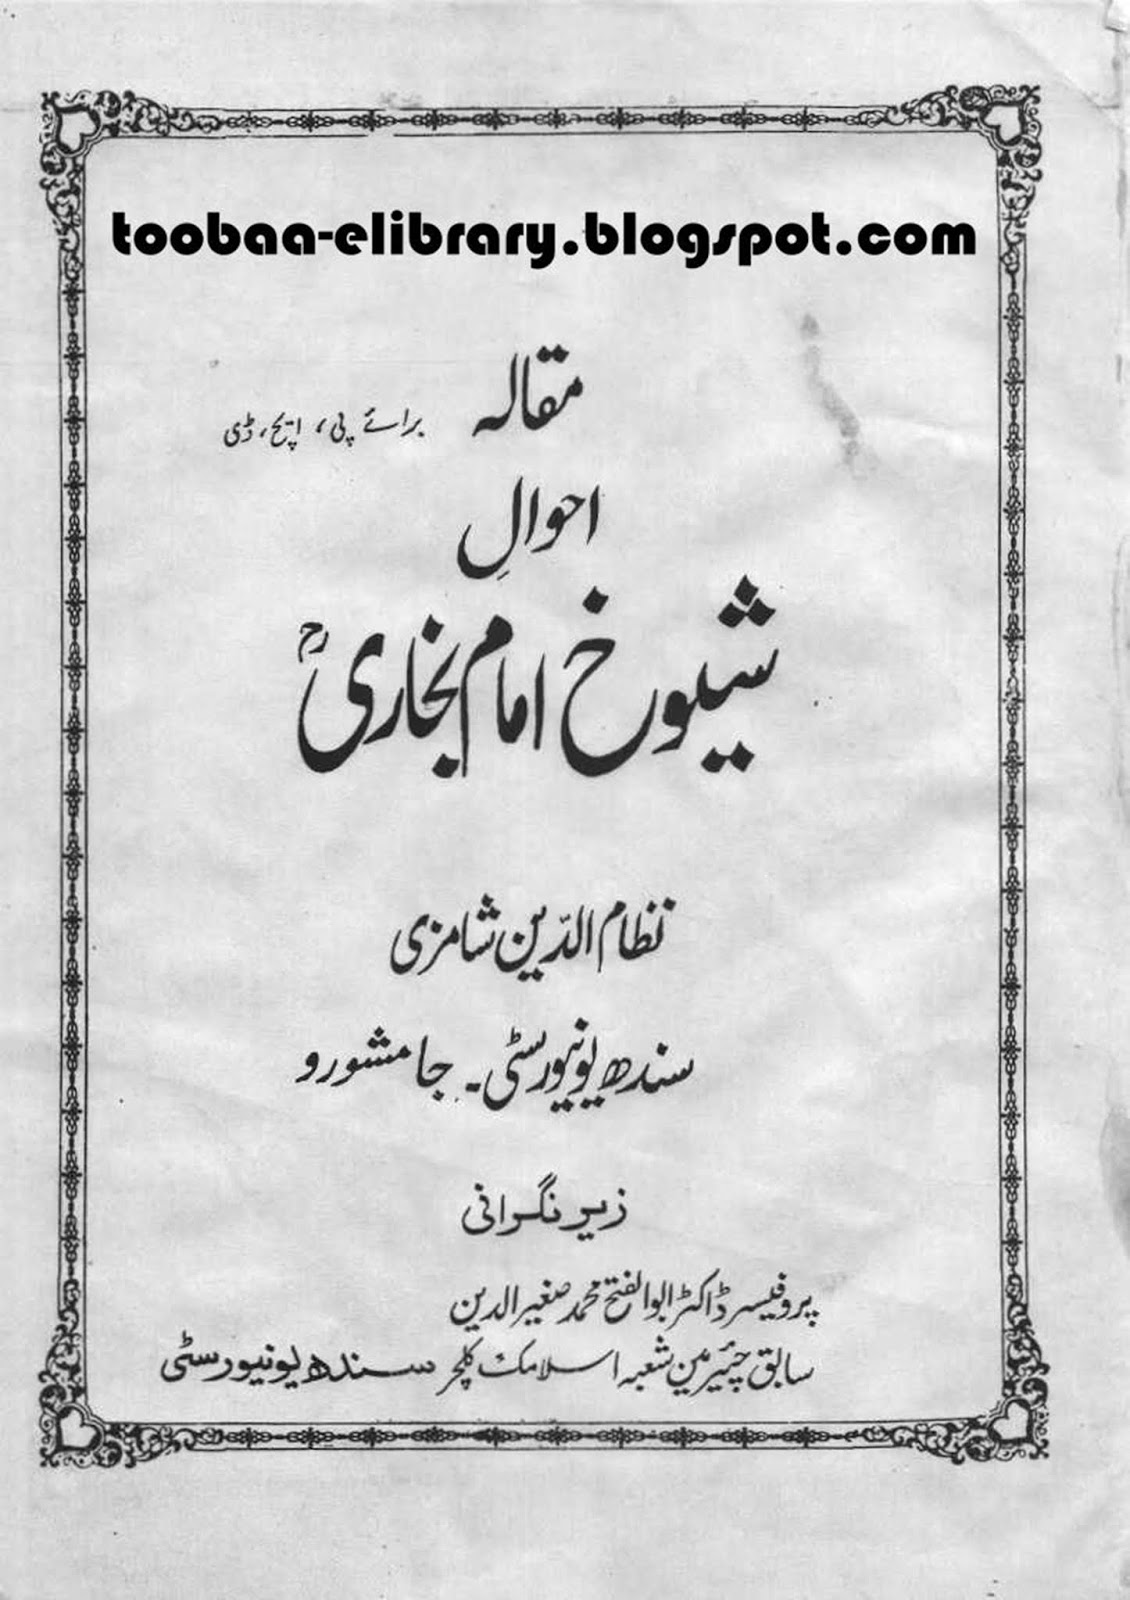 toobaa-elibrary.blogspot.com
مقالہ برائے پی، ایچ، ڈی
احوالِ
شیوخ امام بخاریؒ
نظام الدّین شامزی
سندھ یونیورسٹی۔ جامشورو
زیر نگرانی
پروفیسر ڈاکٹر ابوالفتح محمد صغیر الدین
سابق چئیرمین شعبہ اسلامک کلچر سندھ یونیورسٹی